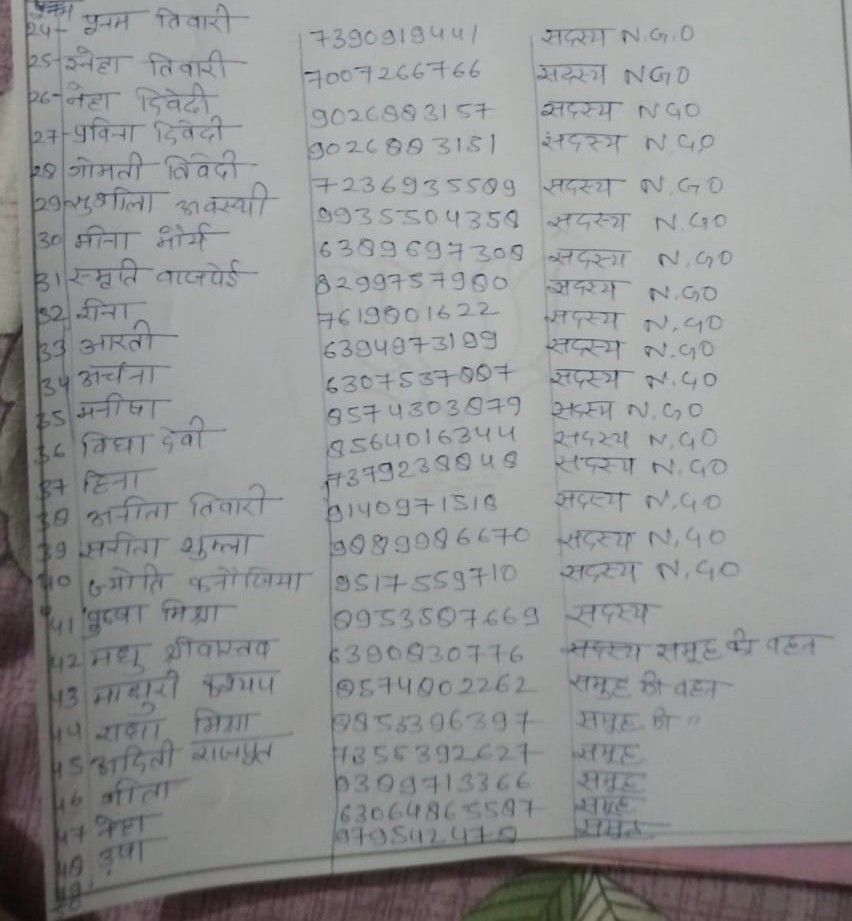 24- पूनम तिवारी 7390919441 सदस्य N.G.O
25- स्नेहा तिवारी 7007266766 सदस्य NGO
26- नेहा द्विवेदी 9026883157 सदस्य NGO
27- द्विवेदी 9026883151 सदस्य N.GO
28 गोमती त्रिवेदी 7236935589 सदस्य N.GO
29 सुशीला अवस्थी 9935504358 सदस्य N.GO
30 मीना मौर्य 6389697308 सदस्य N.GO
31 स्मृति वाजपेई 8299757980 सदस्य N.GO
32 रीना 7619801622 सदस्य N.GO
33 आरती 6394973199 सदस्य N.GO
34 अर्चना 6307537887 सदस्य N.GO
35 मनीषा 8574303879 सदस्य N.GO
36 विद्या देवी 8564016344 सदस्य N.GO
37 हिना 7379238848 सदस्य N.GO
38 अनीता तिवारी 9140971518 सदस्य N.GO
39 सरीता शुक्ला 9889986670 सदस्य N.GO
40 ज्योति कनौजिया 9517559710 सदस्य N.GO
41 पुष्पा मिश्रा 8953587669 सदस्य
42 मधु श्रीवास्तव 6390830776 सदस्य समूह की बहन
43 माधुरी कश्यप 8574802262 समुह की बहन
44 मिश्रा समूह की "
45 अदिती राजपूत 7355392627 समूह
46 गीता 9389713366 समूह
47 नेहा 63064865587 समूह
48 उषा 979542478